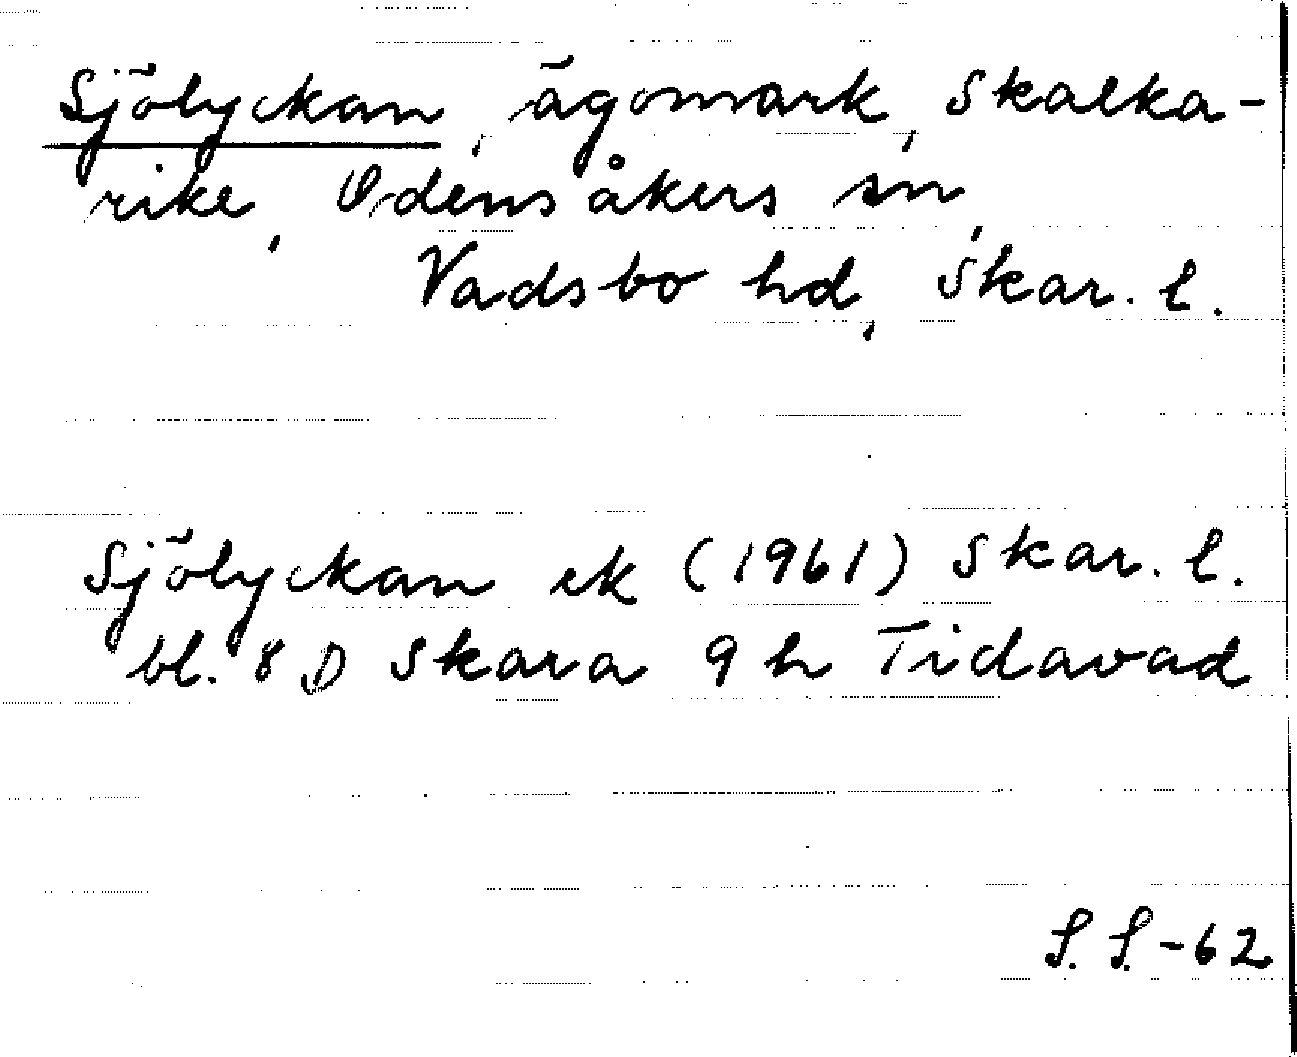 Sjölyckan, ägomark, Skalka-
rike, Odensåkers sn,
Vadsbo hd, Skar. l.
Sjölyckan ek (1961) Skar. l.
bl. 8 D Skara 9 h Tidavad
S. S. -62